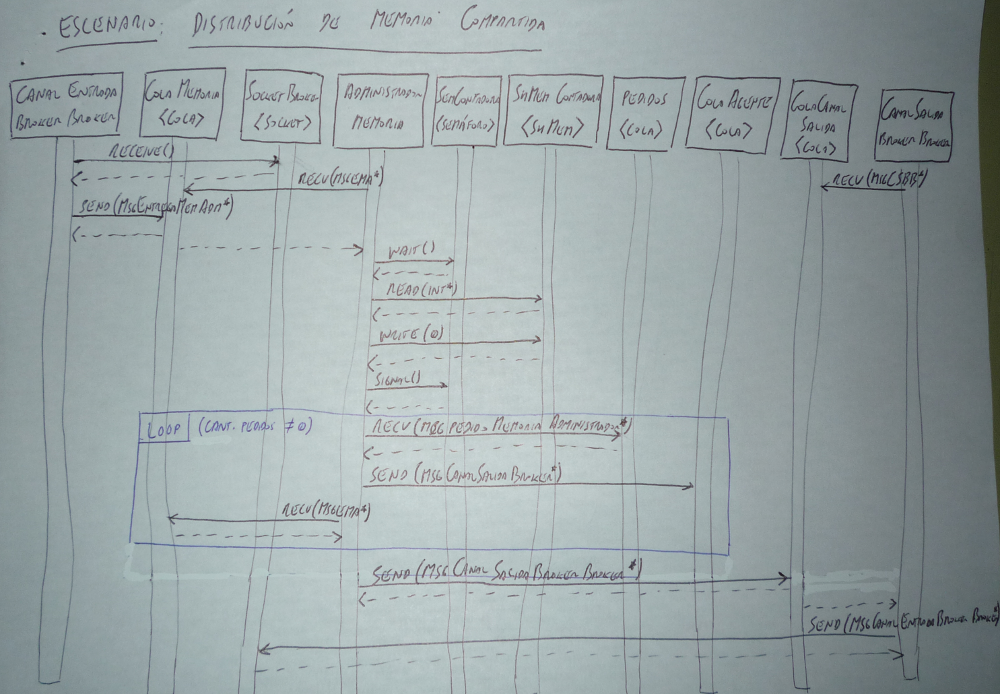 . ESCENARIO: DISTRIBUCIÓN DE MEMORIA COMPARTIDA
CANAL ENTRADA
BROKER BROKER
COLA MEMORIA
<COLA>
SOCKET BROKER
<SOCKET>
ADMINISTRADOR
MEMORIA
SEMCONTADORA
(SEMÁFORO)
SHMEM CONTADORA
<SHMEM>
PEDIDOS
<COLA>
COLA AGENTE
<COLA>
COLA CANAL
SALIDA
<COLA>
CANAL SALIDA
BROKER BROKER
RECEIVE()
RECV(MSGCEMA*)
RECV(MSGCSBB*)
SEND(MSGENTREGOMEMADM*)
WAIT()
READ(INT*)
WRITE(0)
SIGNAL()
LOOP (CANT. PEDIDOS ≠ 0)
RECV(MSGPEDIDOMEMORIAADMINISTRADOR*)
SEND(MSGCANALSALIDABROKER*)
RECV(MSGCEMA*)
SEND(MSGCANALSALIDABROKERBROKER*)
SEND(MSGCANALENTRADABROKERBROKER*)